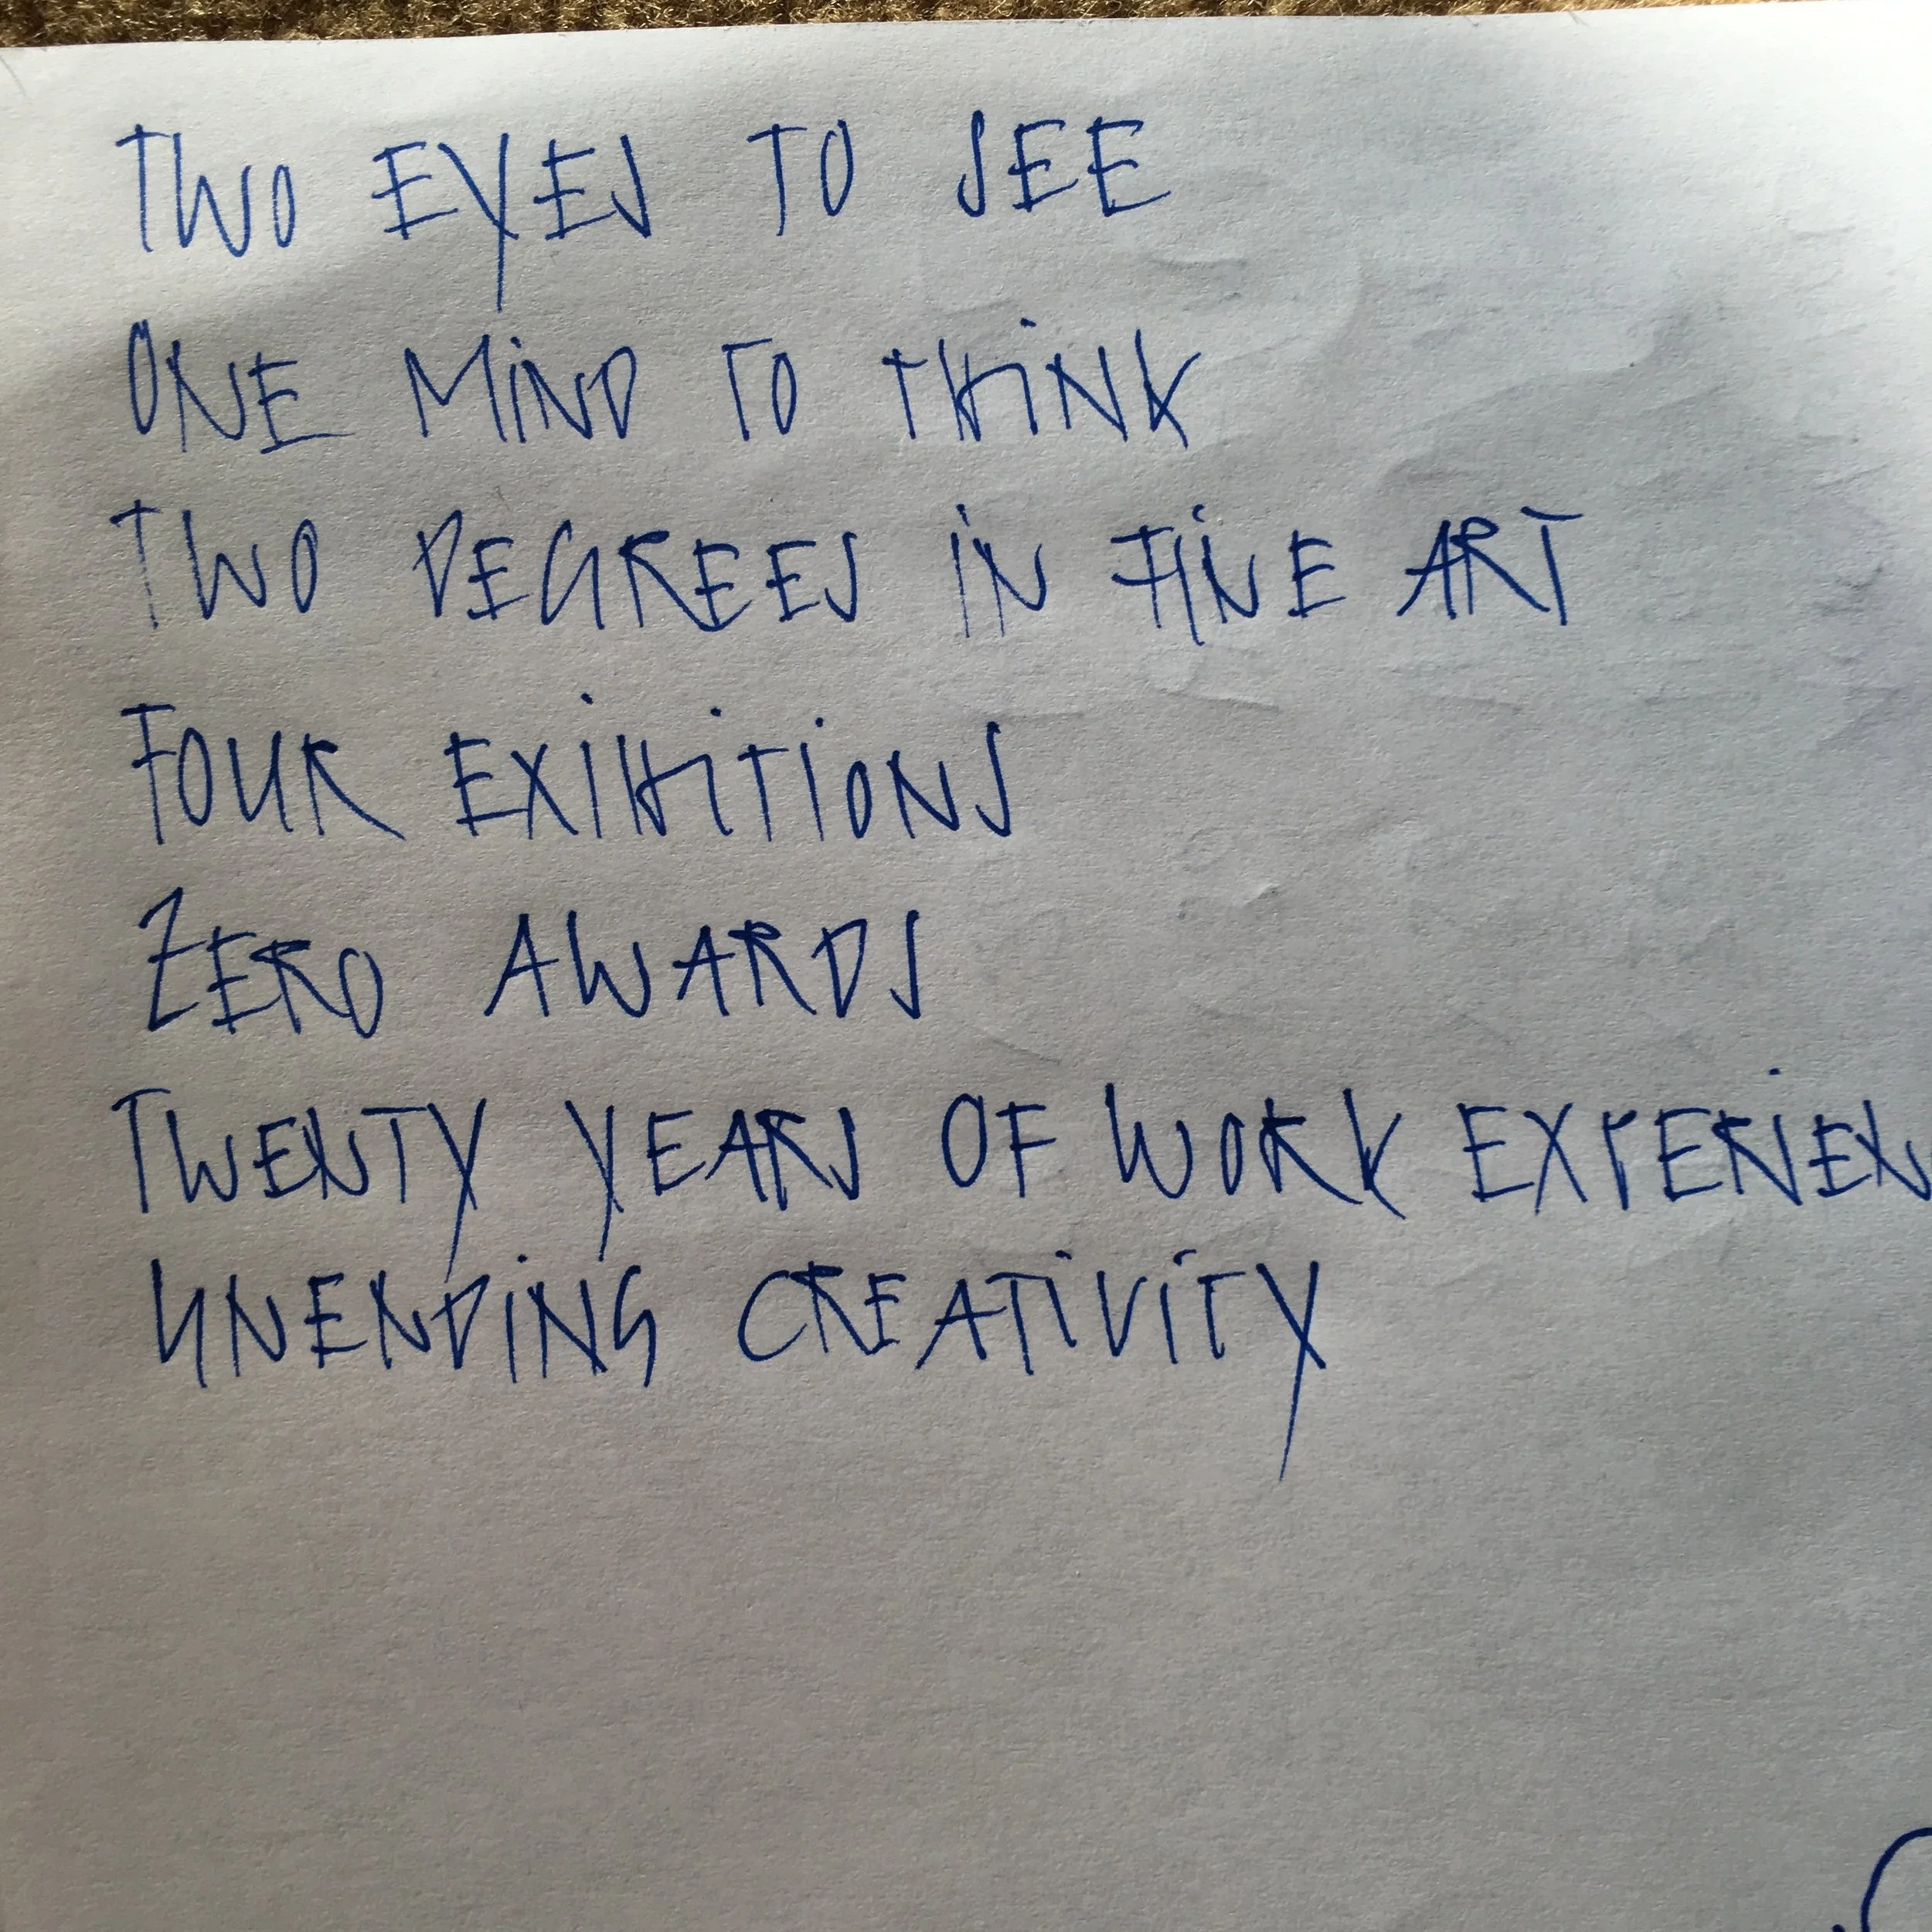 TWO EYES TO SEE
ONE MiND TO THiNK
TWO DEGREES iN FiNE ART
FOUR EXiHiTiONS
ZERO AWARDS
TWENTY YEARS OF WORK EXPERiEN
UNENDiNG CREATiViTY